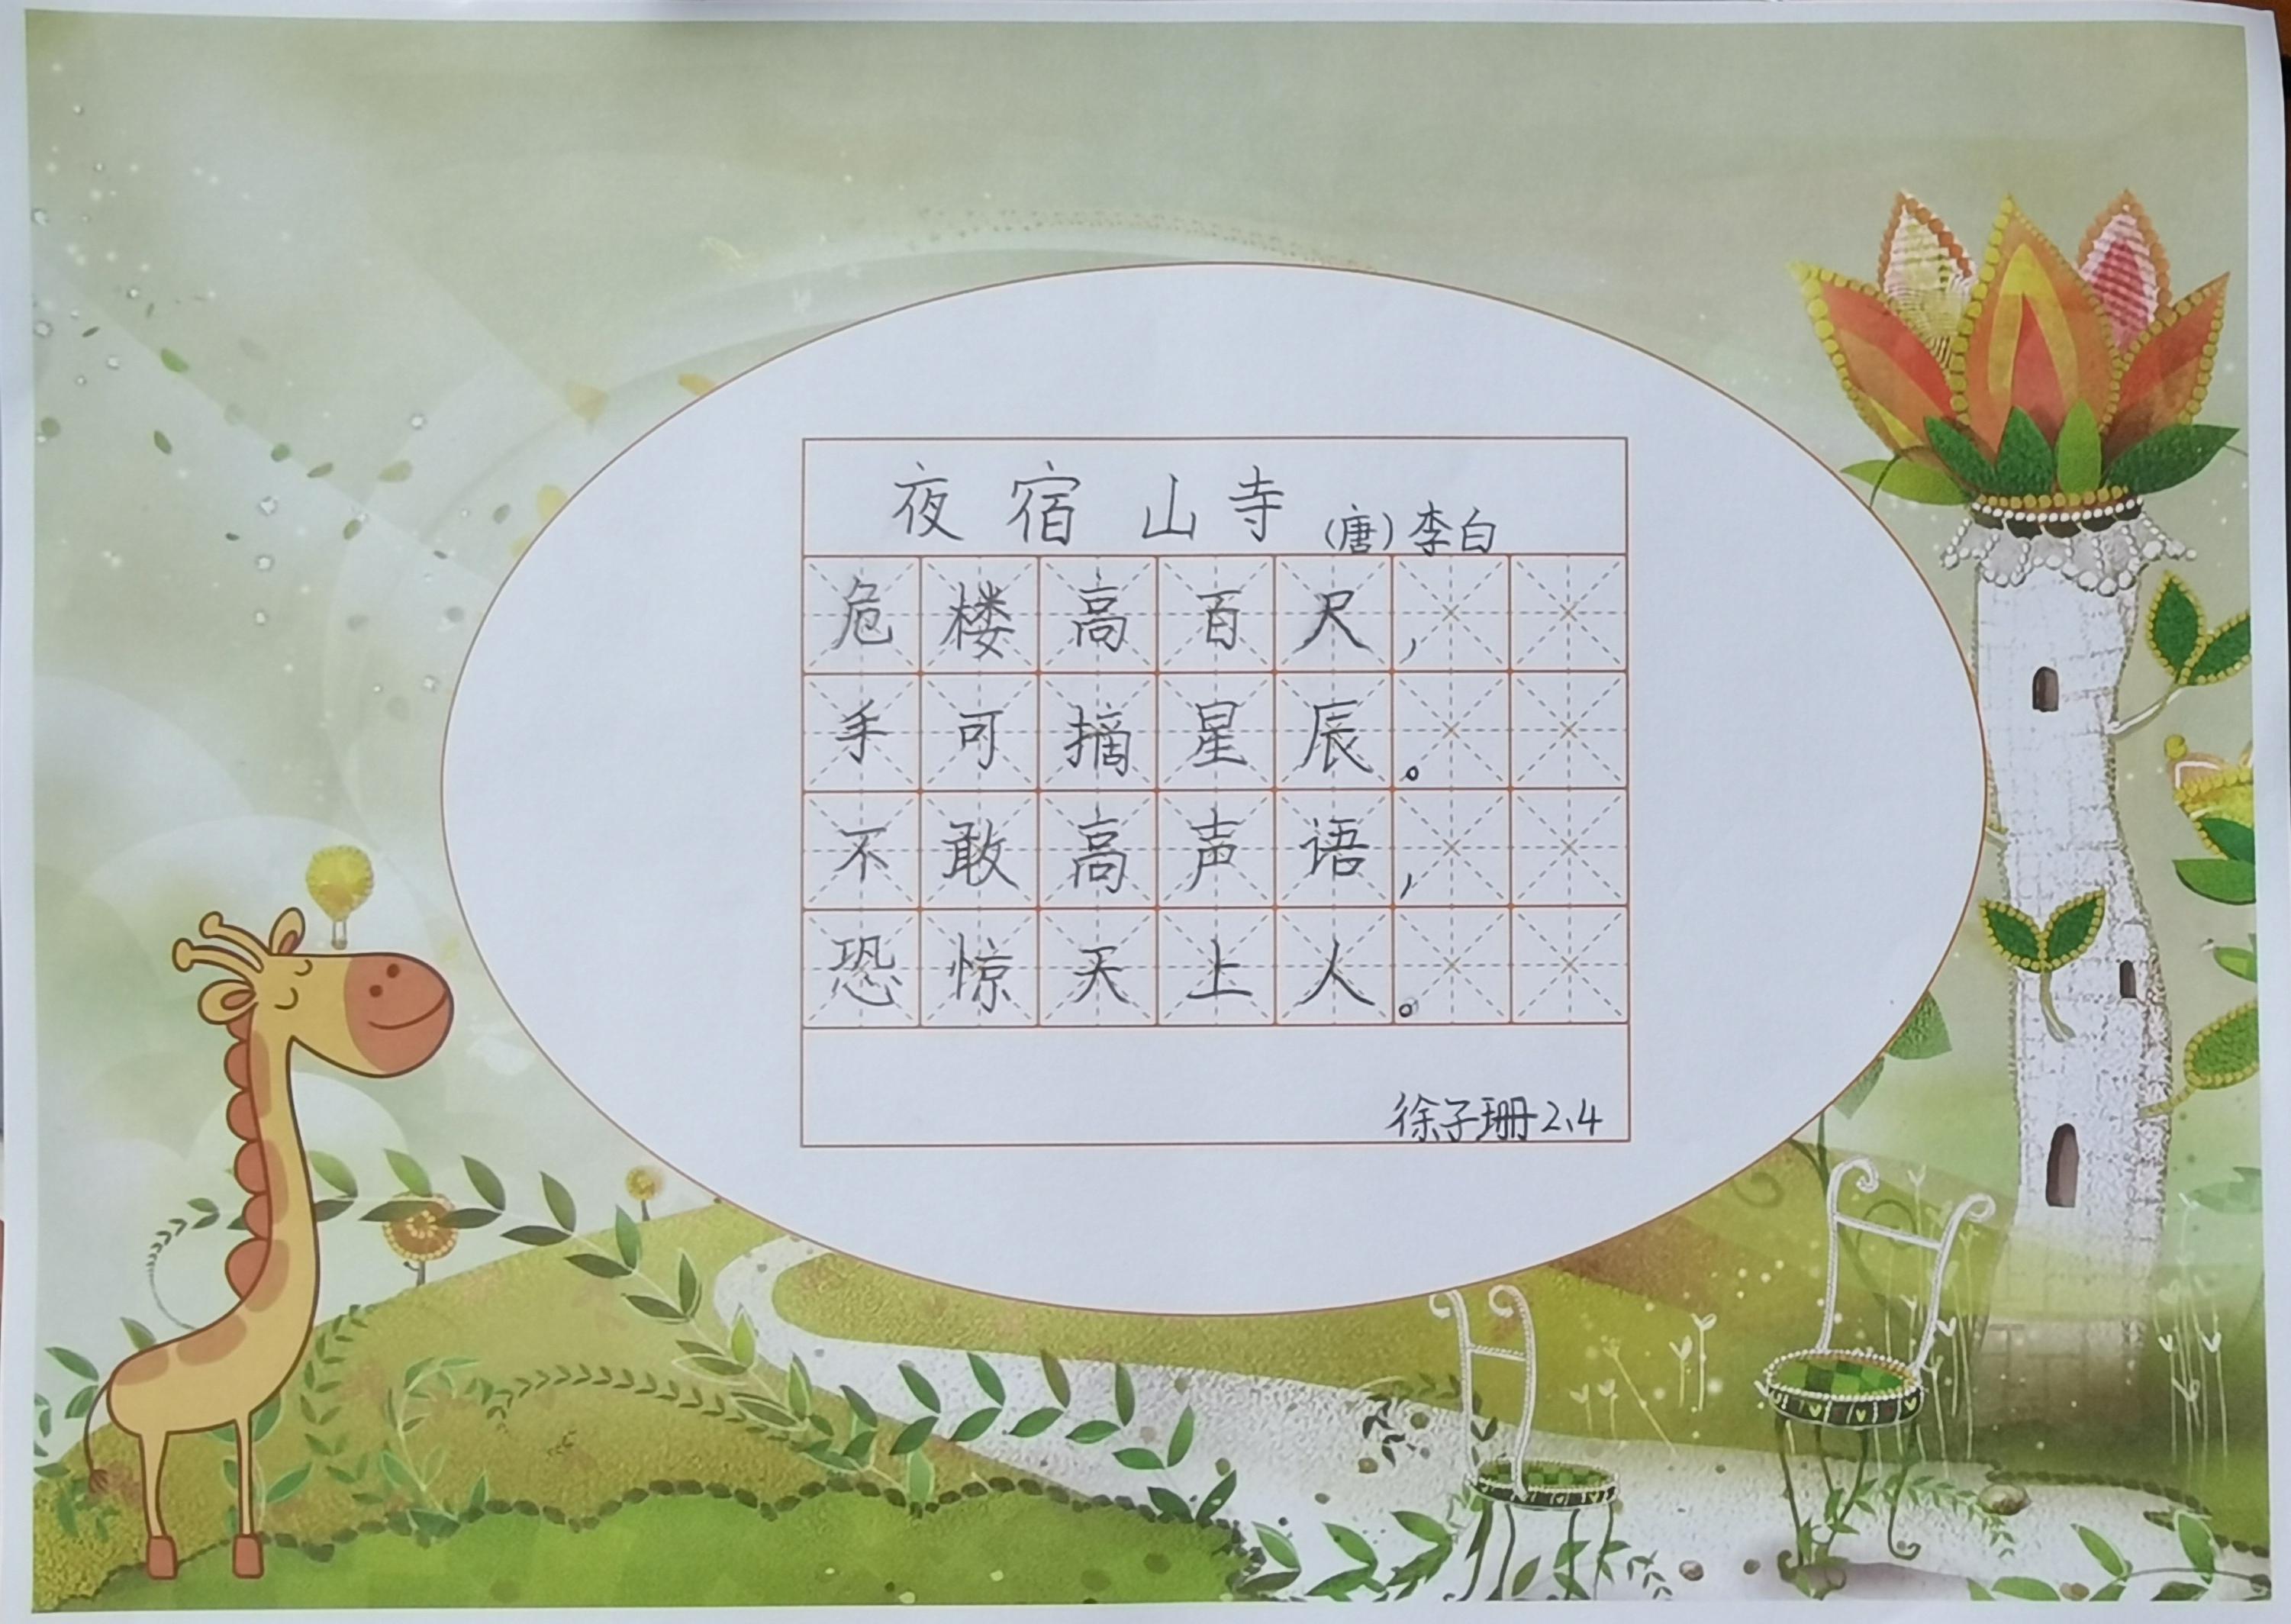 夜宿山寺 (唐)李白
危楼高百尺，
手可摘星辰。
不敢高声语，
恐惊天上人。
徐子珊2、4